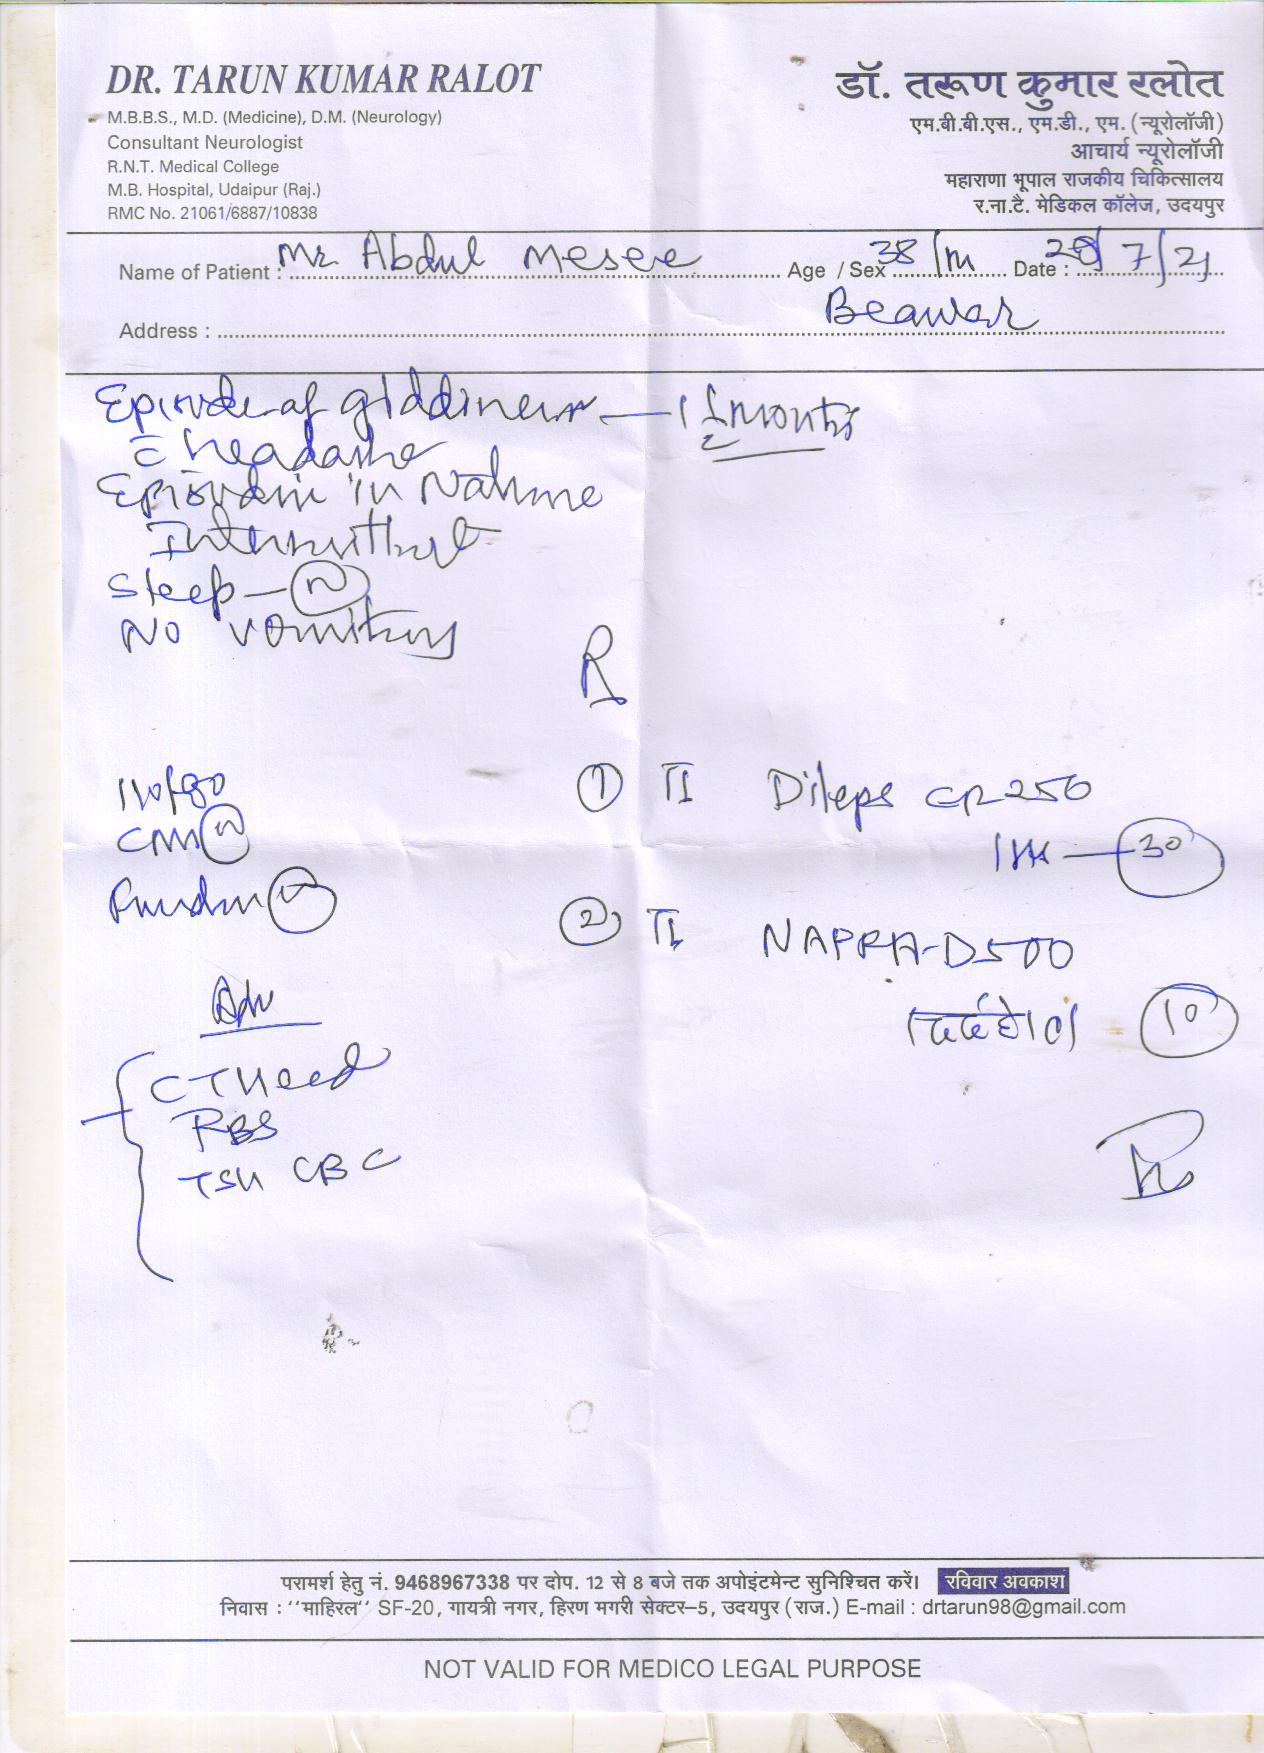 DR. TARUN KUMAR RALOT
M.B.B.S., M.D. (Medicine), D.M. (Neurology)
Consultant Neurologist
R.N.T. Medical College
M.B. Hospital, Udaipur (Raj.)
RMC No. 21061/6887/10838
डॉ. तरूण कुमार रलोत
एम.बी.बी.एस., एम.डी., एम. (न्यूरोलॉजी)
आचार्य न्यूरोलॉजी
महाराणा भूपाल राजकीय चिकित्सालय
र.ना.टै. मेडिकल कॉलेज, उदयपुर
Name of Patient : Mr Abdul Age / Sex 38/m Date : 28/7/21
Address : Beawar
Episode of giddiness — 1 months
c headache
Episodic in Nature
Intermittent
Sleep — N
NO vomiting
R
110/80
CNS N
N
① T Dileps CR 250
30
② T NAPRA-D 500
दर्द होतो 10
Adv
CT Head
RBS
TSH CBC
परामर्श हेतु नं. 9468967338 पर दोप. 12 से 8 बजे तक अपोइंटमेन्ट सुनिश्चित करें। रविवार अवकाश
निवास : ''माहिरल'' SF-20, गायत्री नगर, हिरण मगरी सेक्टर–5, उदयपुर (राज.) E-mail : drtarun98@gmail.com
NOT VALID FOR MEDICO LEGAL PURPOSE